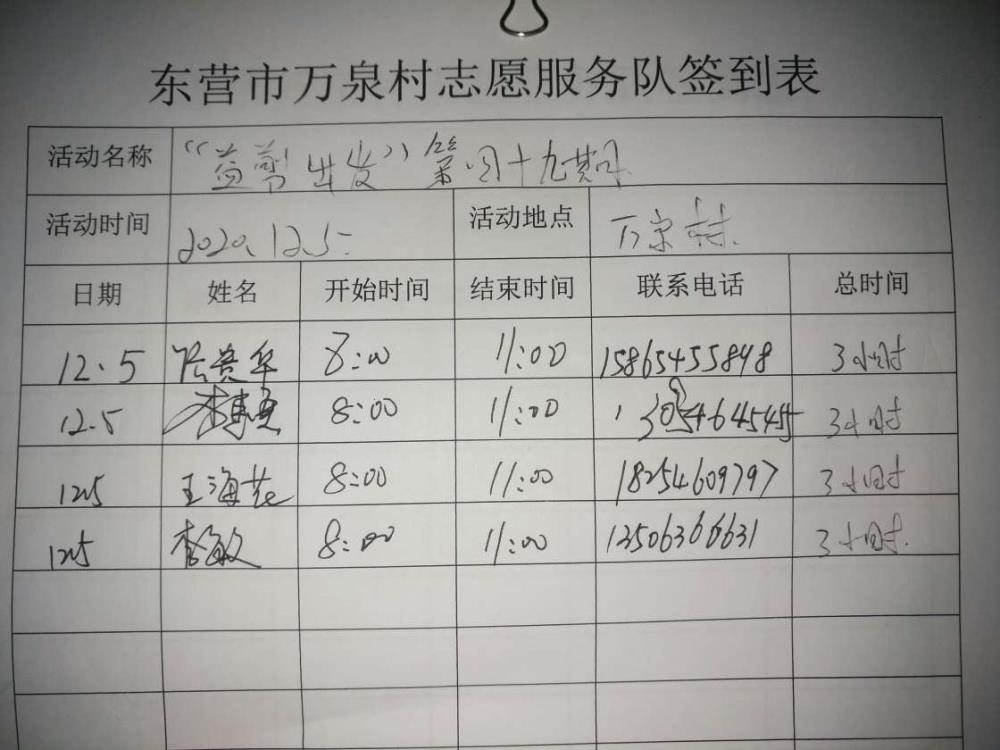 东营市万泉村志愿服务队签到表
活动名称 “益剪出发”第四十九期
活动时间 2020.12.5 活动地点 万泉村
日期 姓名 开始时间 结束时间 联系电话 总时间
12.5 8:00 11:00 15865455898 3小时
12.5 8:00 11:00 3小时
12.5 王海花 8:00 11:00 18254609797 3小时
12.5 李敏 8:00 11:00 3小时